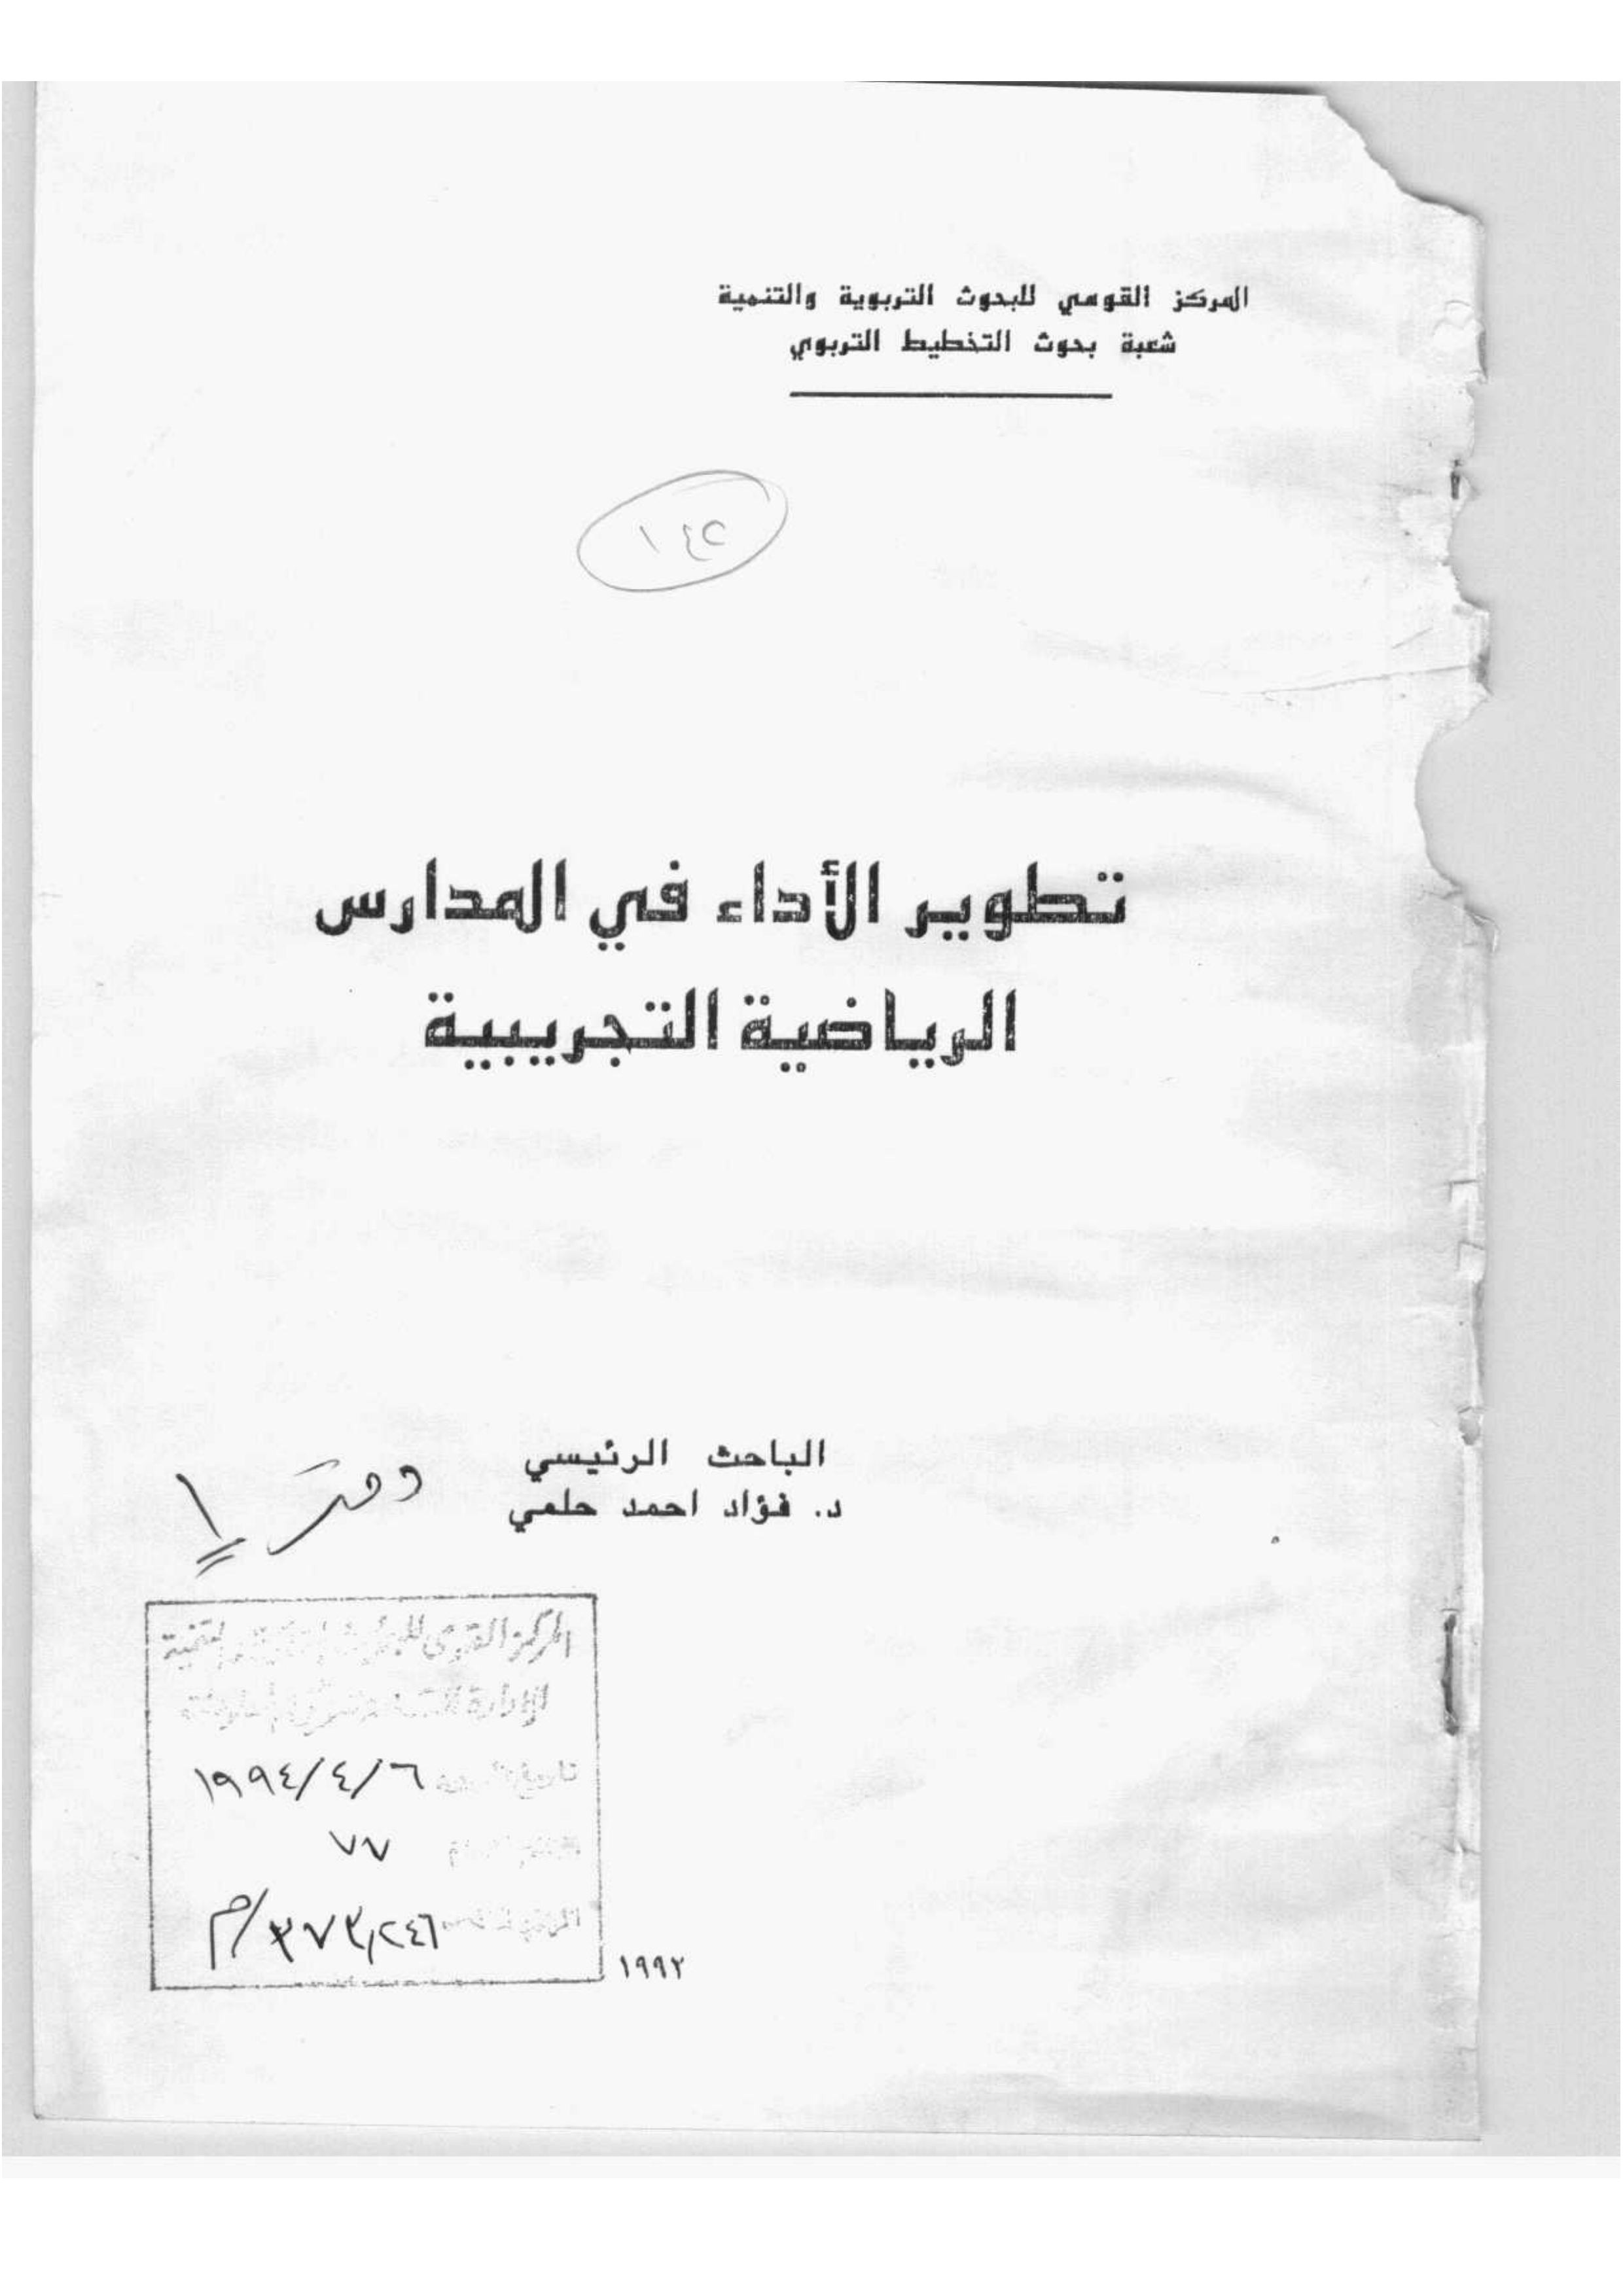 المركز القومي للبحوث التربوية والتنمية
شعبة بحوث التخطيط التربوي
١٤٢
تطوير الأداء في المدارس
الرياضية التجريبية
الباحث الرئيسي
د. فؤاد احمد حلمي
المركز القومى للبحوث التربوية والتنمية
١٩٩٤/٤/٦
٧٧
٣٧٣,٢٤٦/م
١٩٩٢